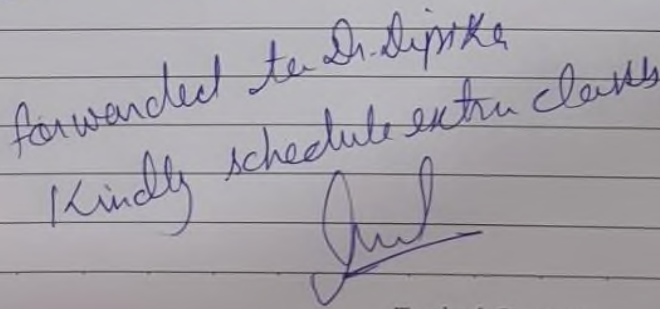 forwarded to Dr. Dipika
Kindly schedule extra class